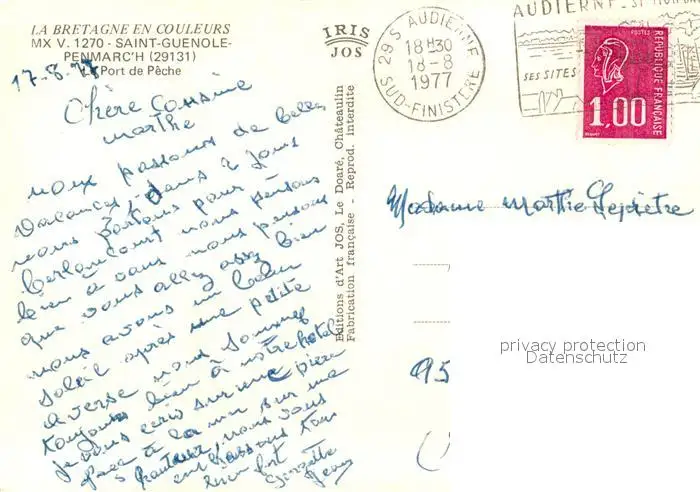 LA BRETAGNE EN COULEURS
MX V. 1270 - SAINT-GUENOLE-
PENMARC'H (29131)
Le Port de Pêche
17.8.77
Chère Cousine
Marthe
nous passons de belles
Vacances, dans 2 jours
nous partons pour
nous pensons
bien à vous nous pensons
que vous allez assez bien
nous avons un beau
soleil après une petite
averse nous sommes
toujours bien à notre hotel
je vous écris sur une pierre
face à la mer sur une
hauteur, nous vous
embrassons tous
bien fort Georgette
Jean
IRIS
JOS
Editions d'Art JOS, Le Doaré, Châteaulin
Fabrication française - Reprod. Interdite
29 S AUDIERNE
18H30
18-8
1977
SUD-FINISTERE
AUDIERNE
SES SITES
POSTES
REPUBLIQUE FRANÇAISE
1,00
Madame Marthe Lepretre
95
privacy protection
Datenschutz